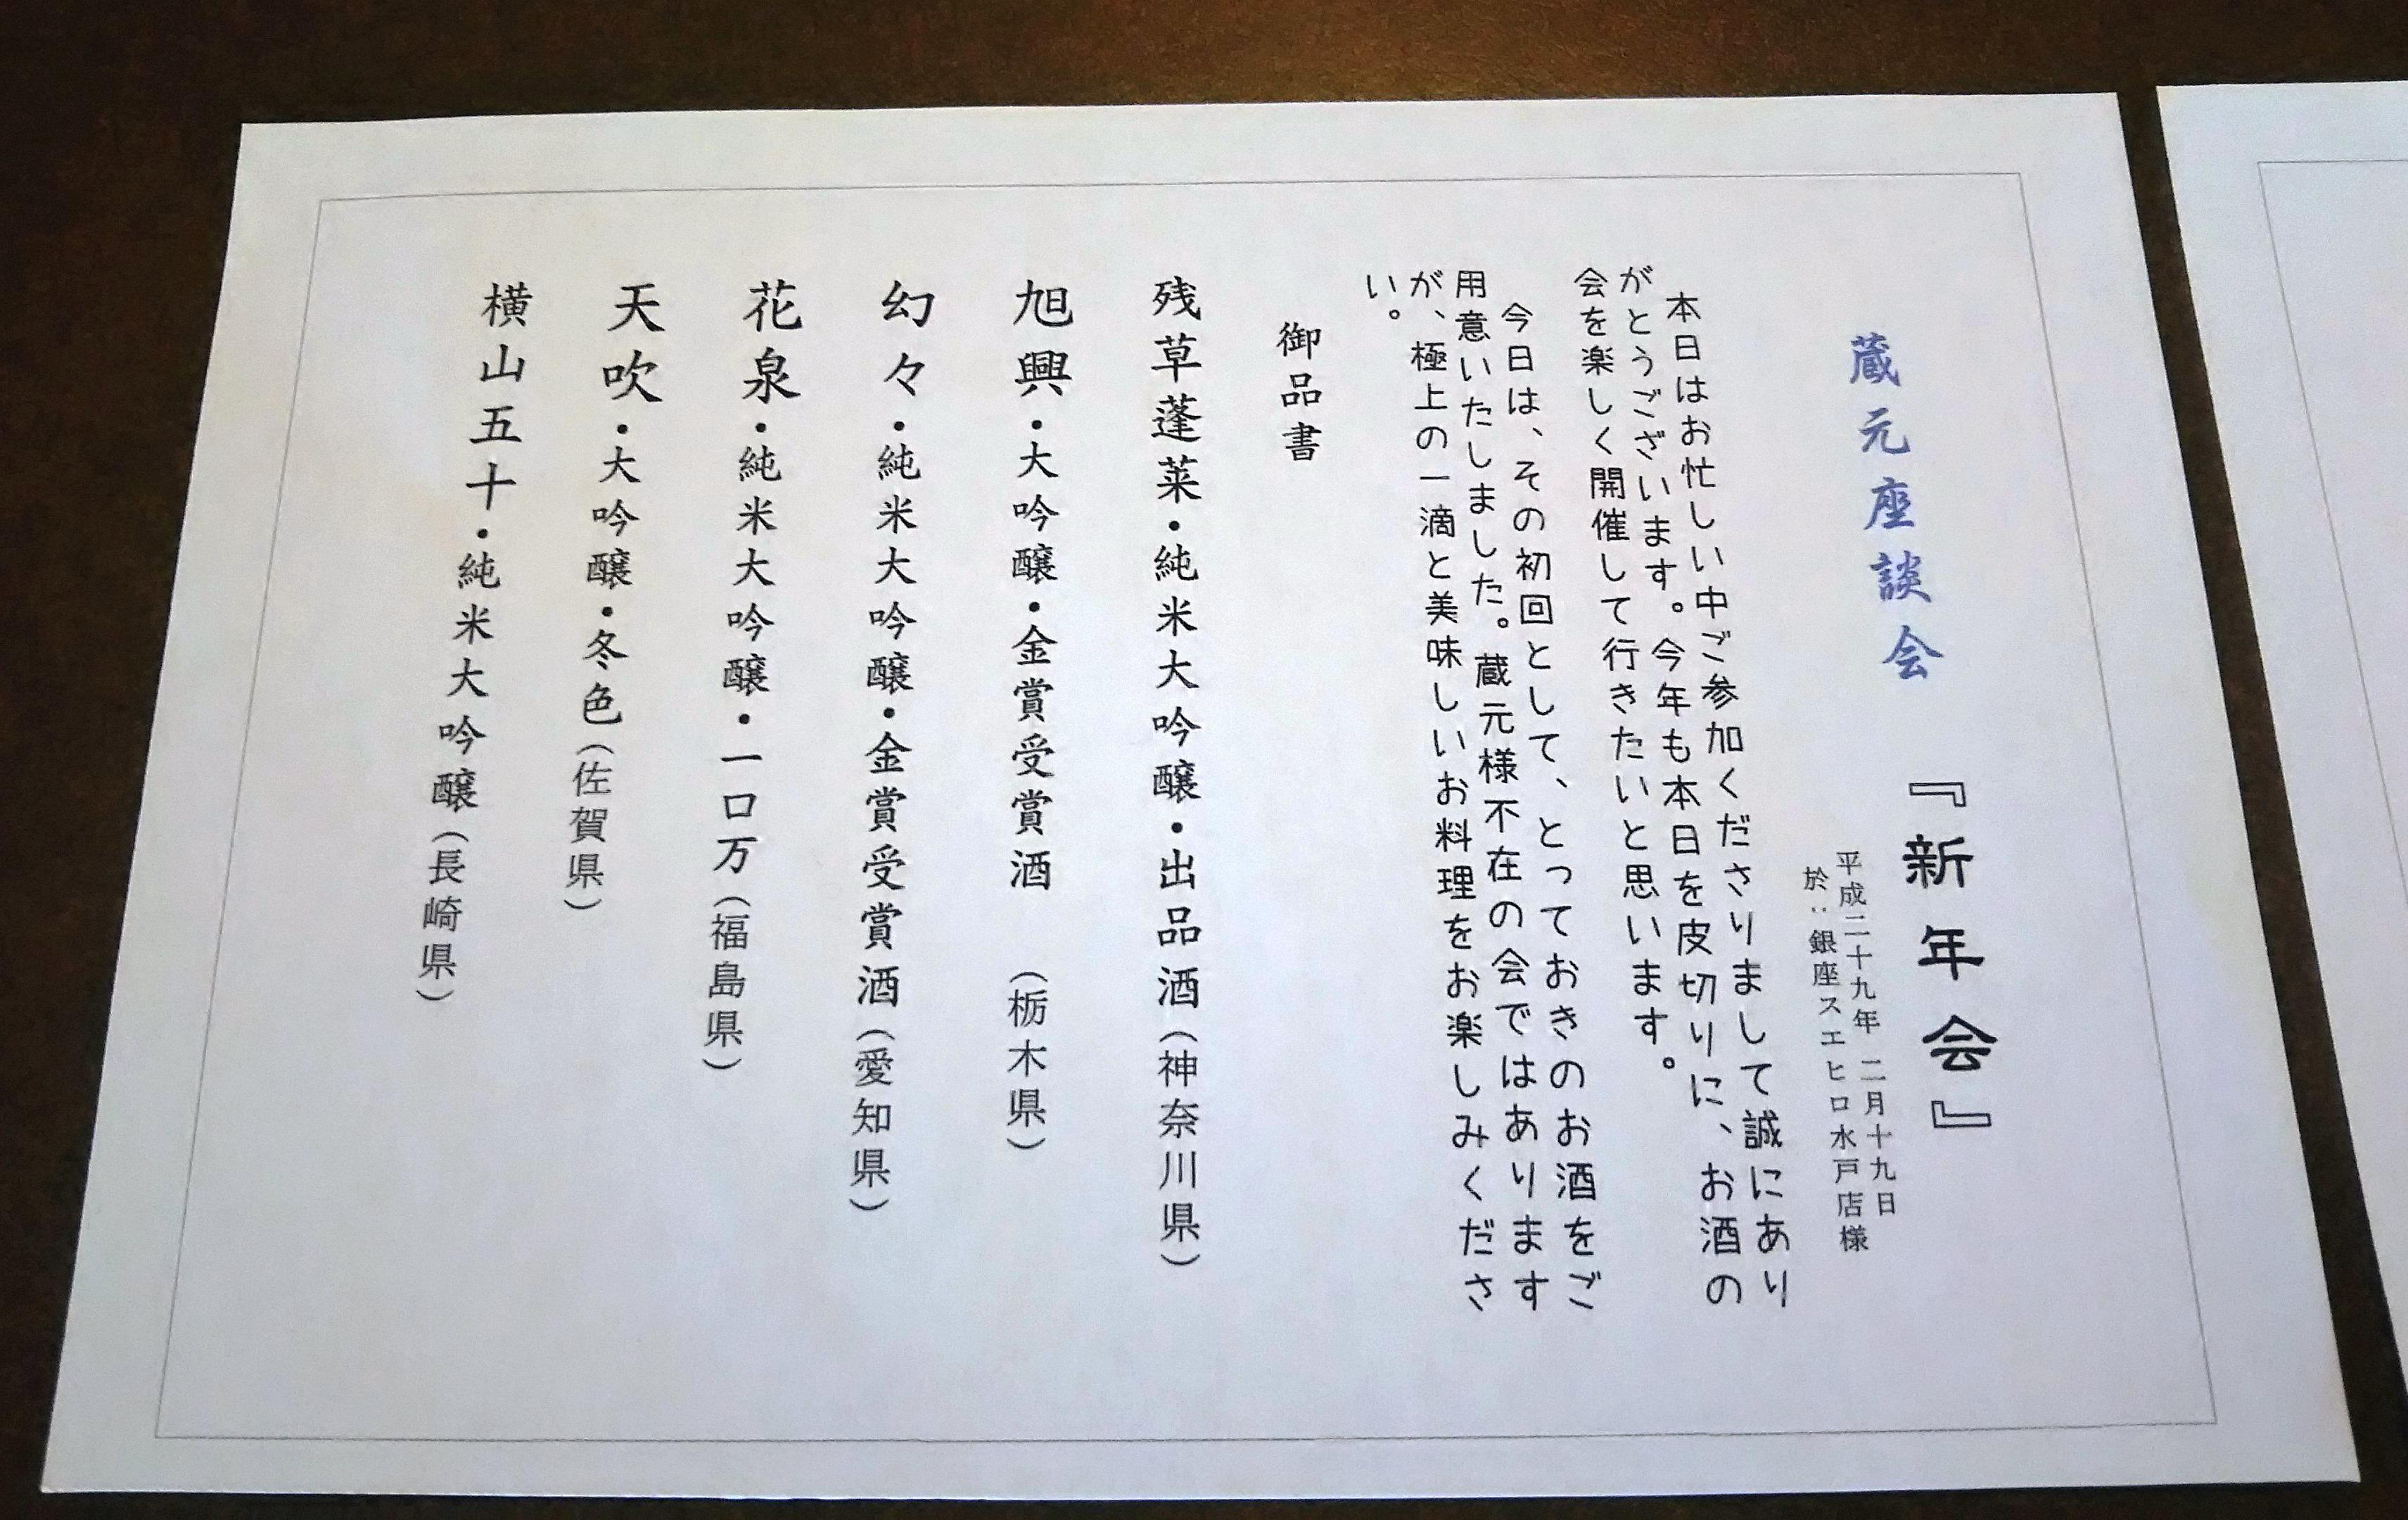 蔵元座談会 『新年会』
平成二十九年 二月十九日
於：銀座スエヒロ水戸店様
本日はお忙しい中ご参加くださりまして誠にあり
がとうございます。今年も本日を皮切りに、お酒の
会を楽しく開催して行きたいと思います。
今日は、その初回として、とっておきのお酒をご
用意いたしました。蔵元様不在の会ではあります
が、極上の一滴と美味しいお料理をお楽しみくださ
い。
御品書
残草蓬莱・純米大吟醸・出品酒（神奈川県）
旭興・大吟醸・金賞受賞酒 （栃木県）
幻々・純米大吟醸・金賞受賞酒（愛知県）
花泉・純米大吟醸・一口万（福島県）
天吹・大吟醸・冬色（佐賀県）
横山五十・純米大吟醸（長崎県）